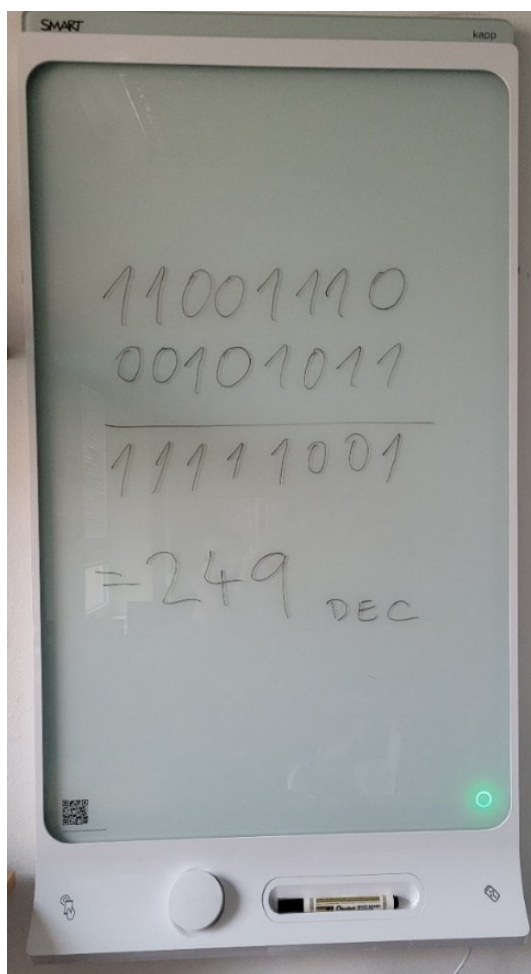 SMART
kapp
11001110
00101011
11111001
=249 DEC